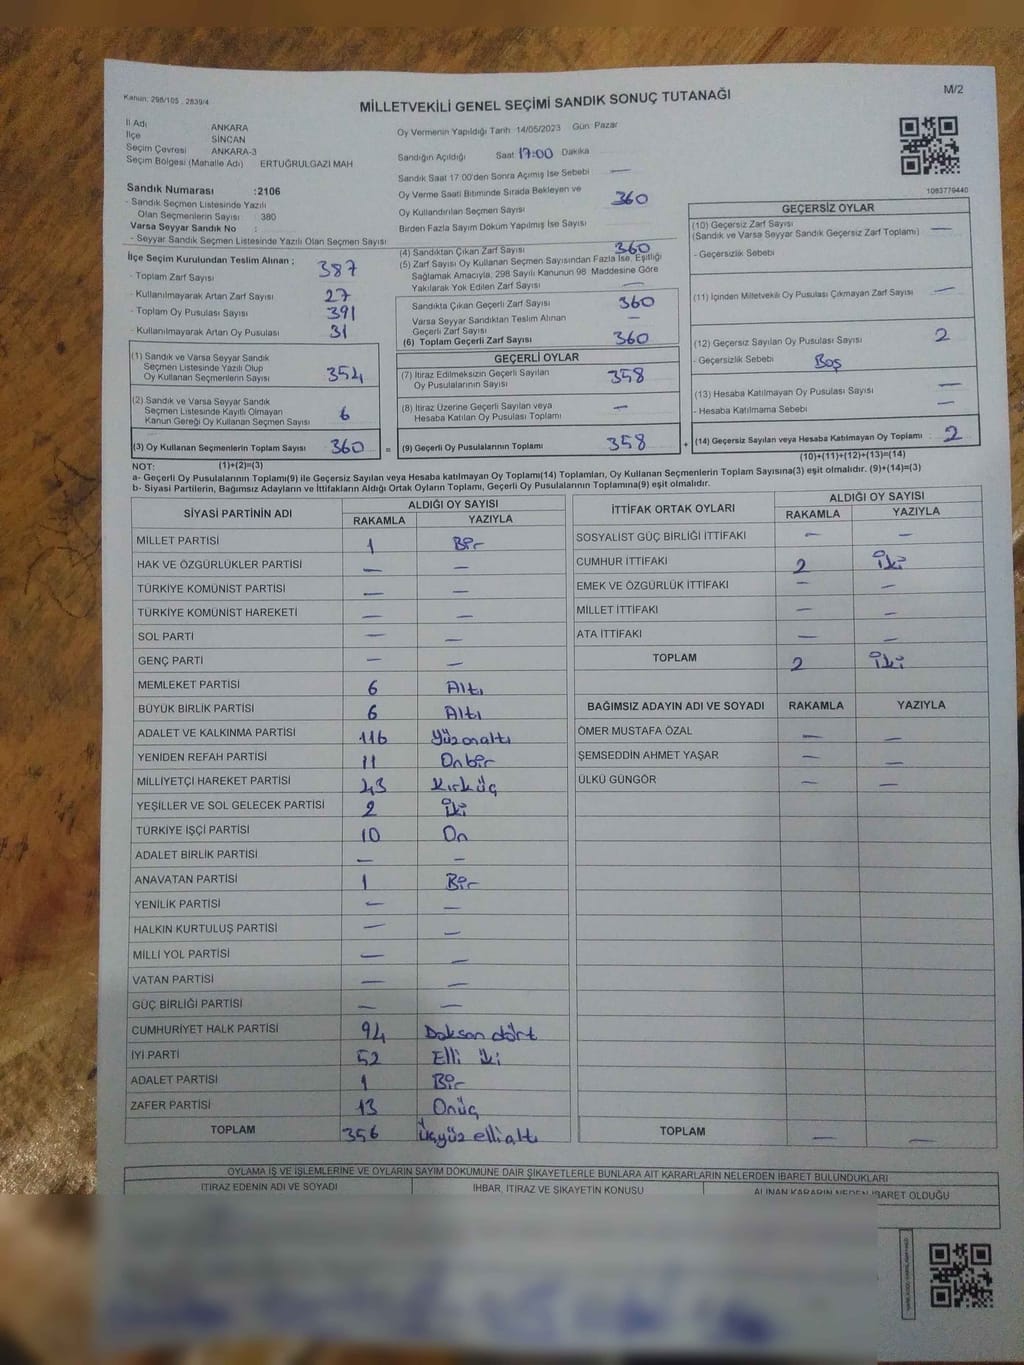 Kanun: 298/105 , 2839/4
MİLLETVEKİLİ GENEL SEÇİMİ SANDIK SONUÇ TUTANAĞI
M/2
İl Adı ANKARA
İlçe SİNCAN
Seçim Çevresi ANKARA-3
Seçim Bölgesi (Mahalle Adı) ERTUĞRULGAZİ MAH
Sandık Numarası :2106
- Sandık Seçmen Listesinde Yazılı
Olan Seçmenlerin Sayısı : 380
Varsa Seyyar Sandık No :
- Seyyar Sandık Seçmen Listesinde Yazılı Olan Seçmen Sayısı:
İlçe Seçim Kurulundan Teslim Alınan ;
- Toplam Zarf Sayısı 387
- Kullanılmayarak Artan Zarf Sayısı 27
- Toplam Oy Pusulası Sayısı 391
- Kullanılmayarak Artan Oy Pusulası 31
(1) Sandık ve Varsa Seyyar Sandık
Seçmen Listesinde Yazılı Olup
Oy Kullanan Seçmenlerin Sayısı 354
(2) Sandık ve Varsa Seyyar Sandık
Seçmen Listesinde Kayıtlı Olmayan
Kanun Gereği Oy Kullanan Seçmen Sayısı 6
(3) Oy Kullanan Seçmenlerin Toplam Sayısı 360 =
(1)+(2)=(3)
Oy Vermenin Yapıldığı Tarih 14/05/2023 Gün Pazar
Sandığın Açıldığı Saat 17:00 Dakika
Sandık Saat 17:00'den Sonra Açımış İse Sebebi —
Oy Verme Saati Bitiminde Sırada Bekleyen ve
Oy Kullandırılan Seçmen Sayısı 360
Birden Fazla Sayım Döküm Yapılmış İse Sayısı
(4) Sandıktan Çıkan Zarf Sayısı 360
(5) Zarf Sayısı Oy Kullanan Seçmen Sayısından Fazla İse, Eşitliği
Sağlamak Amacıyla, 298 Sayılı Kanunun 98. Maddesine Göre
Yakılarak Yok Edilen Zarf Sayısı —
Sandıkta Çıkan Geçerli Zarf Sayısı 360
Varsa Seyyar Sandıktan Teslim Alınan
Geçerli Zarf Sayısı —
(6) Toplam Geçerli Zarf Sayısı 360
GEÇERLİ OYLAR
(7) İtiraz Edilmeksizin Geçerli Sayılan
Oy Pusulalarının Sayısı 358
(8) İtiraz Üzerine Geçerli Sayılan veya
Hesaba Katılan Oy Pusulası Toplamı —
(9) Geçerli Oy Pusulalarının Toplamı 358 +
1083779440
GEÇERSİZ OYLAR
(10) Geçersiz Zarf Sayısı
(Sandık ve Varsa Seyyar Sandık Geçersiz Zarf Toplamı) —
- Geçersizlik Sebebi
(11) İçinden Milletvekili Oy Pusulası Çıkmayan Zarf Sayısı —
(12) Geçersiz Sayılan Oy Pusulası Sayısı 2
- Geçersizlik Sebebi Boş
(13) Hesaba Katılmayan Oy Pusulası Sayısı —
- Hesaba Katılmama Sebebi —
(14) Geçersiz Sayılan veya Hesaba Katılmayan Oy Toplamı : 2
(10)+(11)+(12)+(13)=(14)
NOT:
a- Geçerli Oy Pusulalarının Toplamı(9) ile Geçersiz Sayılan veya Hesaba katılmayan Oy Toplamı(14) Toplamları, Oy Kullanan Seçmenlerin Toplam Sayısına(3) eşit olmalıdır. (9)+(14)=(3)
b- Siyasi Partilerin, Bağımsız Adayların ve İttifakların Aldığı Ortak Oyların Toplamı, Geçerli Oy Pusulalarının Toplamına(9) eşit olmalıdır.
SİYASİ PARTİNİN ADI ALDIĞI OY SAYISI
RAKAMLA YAZIYLA
MİLLET PARTİSİ 1 Bir
HAK VE ÖZGÜRLÜKLER PARTİSİ — —
TÜRKİYE KOMÜNİST PARTİSİ — —
TÜRKİYE KOMÜNİST HAREKETİ — —
SOL PARTİ — —
GENÇ PARTİ — —
MEMLEKET PARTİSİ 6 Altı
BÜYÜK BİRLİK PARTİSİ 6 Altı
ADALET VE KALKINMA PARTİSİ 116 Yüzonaltı
YENİDEN REFAH PARTİSİ 11 Onbir
MİLLİYETÇİ HAREKET PARTİSİ 43 Kırküç
YEŞİLLER VE SOL GELECEK PARTİSİ 2 İki
TÜRKİYE İŞÇİ PARTİSİ 10 On
ADALET BİRLİK PARTİSİ — —
ANAVATAN PARTİSİ 1 Bir
YENİLİK PARTİSİ — —
HALKIN KURTULUŞ PARTİSİ — —
MİLLİ YOL PARTİSİ — —
VATAN PARTİSİ — —
GÜÇ BİRLİĞİ PARTİSİ — —
CUMHURİYET HALK PARTİSİ 94 Doksan dört
İYİ PARTİ 52 Elli iki
ADALET PARTİSİ 1 Bir
ZAFER PARTİSİ 13 Onüç
TOPLAM 356 Üçyüz elli altı
İTTİFAK ORTAK OYLARI ALDIĞI OY SAYISI
RAKAMLA YAZIYLA
SOSYALİST GÜÇ BİRLİĞİ İTTİFAKI — —
CUMHUR İTTİFAKI 2 İki
EMEK VE ÖZGÜRLÜK İTTİFAKI — —
MİLLET İTTİFAKI — —
ATA İTTİFAKI — —
TOPLAM 2 İki
BAĞIMSIZ ADAYIN ADI VE SOYADI RAKAMLA YAZIYLA
ÖMER MUSTAFA ÖZAL — —
ŞEMSEDDİN AHMET YAŞAR — —
ÜLKÜ GÜNGÖR — —
TOPLAM — —
OYLAMA İŞ VE İŞLEMLERİNE VE OYLARIN SAYIM DÖKÜMÜNE DAİR ŞİKAYETLERLE BUNLARA AİT KARARLARIN NELERDEN İBARET BULUNDUKLARI
İTİRAZ EDENİN ADI VE SOYADI İHBAR, İTİRAZ VE ŞİKAYETİN KONUSU ALINAN KARARIN NEDEN İBARET OLDUĞU